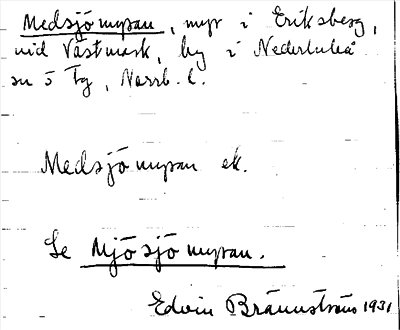 Medsjömyran, myr i Eriksberg,
vid Västmark, by i Nederluleå
sn 5 Tg, Norrb. l.
Medsjömyran ek.
Se Mjösjömyran.
Edvin Brännström 1931